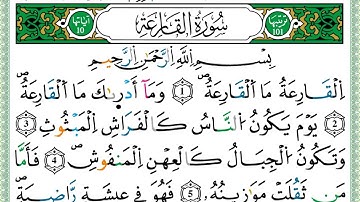 ترتيبها 101 سُورَةُ القَارِعَة آياتها 10
بِسْمِ اللَّهِ الرَّحْمَٰنِ الرَّحِيمِ
اِلْقَارِعَةُ مَا اَلْقَارِعَةُ 1 وَمَآ أَدْر۪يٰكَ مَا اَلْقَارِعَةُ
2 يَوْمَ يَكُونُ اُلنَّاسُ كَالْفَرَاشِ اِلْمَبْثُوثِ 3
وَتَكُونُ اُلْجِبَالُ كَالْعِهْنِ اِلْمَنفُوشِ 4 فَأَمَّا
مَن ثَقُلَتْ مَوَٰزِينُهُۥ 5 فَهُوَ فِي عِيشَةٖ رَّاضِيَةٖ